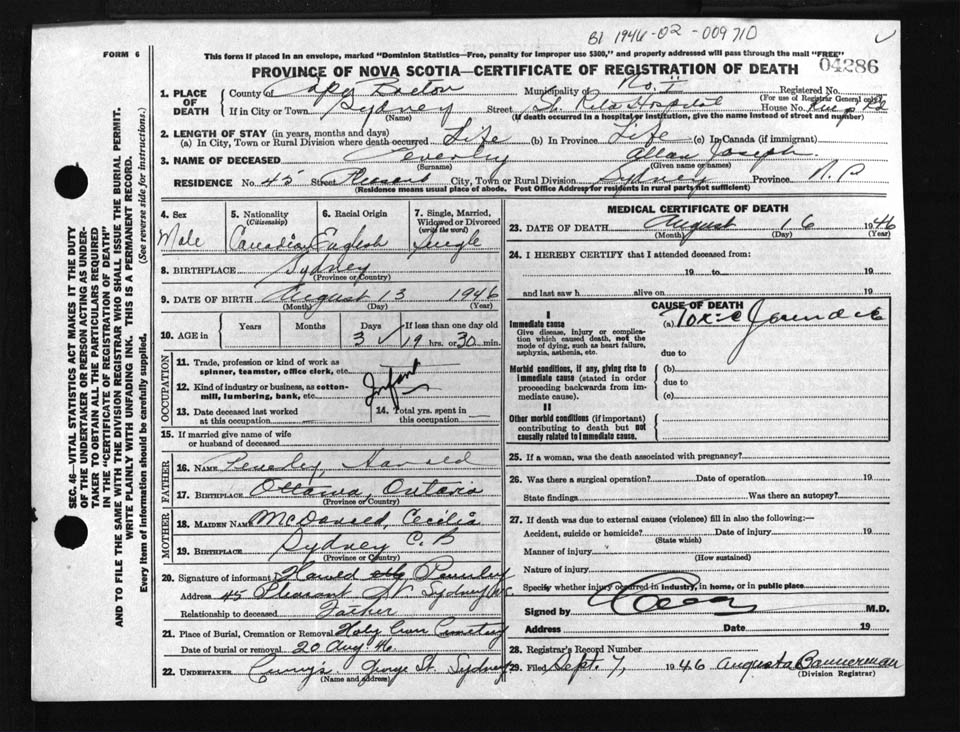 B1 1946-02-009710
FORM 6
This form if placed in an envelope, marked "Dominion Statistics—Free, penalty for improper use $300," and properly addressed will pass through the mail "FREE"
04286
PROVINCE OF NOVA SCOTIA—CERTIFICATE OF REGISTRATION OF DEATH
1. PLACE OF DEATH
County of Cape Breton Municipality of No. 1 Registered No.
(For use of Registrar General only)
If in City or Town Sydney Street St. Rita Hospital House No.
(Name) (If death occurred in a hospital or institution, give the name instead of street and number)
2. LENGTH OF STAY (in years, months and days)
(a) In City, Town or Rural Division where death occurred Life (b) In Province Life (c) In Canada (if immigrant)
3. NAME OF DECEASED Allan Joseph
(Surname) (Given name or names)
RESIDENCE No. 45 Street Pleasant City, Town or Rural Division Sydney Province
(Residence means usual place of abode. Post Office Address for residents in rural parts not sufficient)
4. Sex Male
5. Nationality (Citizenship) Canadian
6. Racial Origin English
7. Single, Married, Widowed or Divorced (write the word) Single
8. BIRTHPLACE Sydney
(Province or Country)
9. DATE OF BIRTH August 13 1946
(Month) (Day) (Year)
10. AGE in Years Months Days If less than one day old
3 19 hrs. or 30 min.
OCCUPATION
11. Trade, profession or kind of work as spinner, teamster, office clerk, etc.
12. Kind of industry or business, as cotton-mill, lumbering, bank, etc.
Infant
13. Date deceased last worked at this occupation
14. Total yrs. spent in this occupation
15. If married give name of wife or husband of deceased
FATHER
16. NAME Harold
17. BIRTHPLACE Ottawa, Ontario
(Province or Country)
MOTHER
18. MAIDEN NAME McDonald, Cecilia
19. BIRTHPLACE Sydney C. B
(Province or Country)
20. Signature of informant Harold
Address 45 Pleasant St. Sydney N.S.
Relationship to deceased Father
21. Place of Burial, Cremation or Removal Holy Cross Cemetery
Date of burial or removal 20 Aug 46
22. UNDERTAKER Curry's George St. Sydney
(Name and Address)
MEDICAL CERTIFICATE OF DEATH
23. DATE OF DEATH August 16 1946
(Month) (Day) (Year)
24. I HEREBY CERTIFY that I attended deceased from:
19 to 19
and last saw h alive on 19
CAUSE OF DEATH
I
Immediate cause
Give disease, injury or complication which caused death, not the mode of dying, such as heart failure, asphyxia, asthenia, etc.
(a) Toxic Jaundice
due to
Morbid conditions, if any, giving rise to immediate cause (stated in order proceeding backwards from immediate cause).
(b)
due to
(c)
II
Other morbid conditions (if important) contributing to death but not causally related to immediate cause.
25. If a woman, was the death associated with pregnancy?
26. Was there a surgical operation? Date of operation 19
State findings Was there an autopsy?
27. If death was due to external causes (violence) fill in also the following:—
Accident, suicide or homicide? Date of injury 19
(State which)
Manner of injury
(How sustained)
Nature of injury
Specify whether injury occurred in industry, in home, or in public place
Signed by M.D.
Address Date 19
28. Registrar's Record Number
29. Filed Sept. 7, 1946 Augusta Bannerman
(Division Registrar)
SEC. 46—VITAL STATISTICS ACT MAKES IT THE DUTY
OF THE UNDERTAKER OR PERSON ACTING AS UNDER-
TAKER TO OBTAIN ALL THE PARTICULARS REQUIRED
IN THE "CERTIFICATE OF REGISTRATION OF DEATH"
AND TO FILE THE SAME WITH THE DIVISION REGISTRAR WHO SHALL ISSUE THE BURIAL PERMIT.
WRITE PLAINLY WITH UNFADING INK. THIS IS A PERMANENT RECORD.
Every item of information should be carefully supplied. (See reverse side for instructions.)